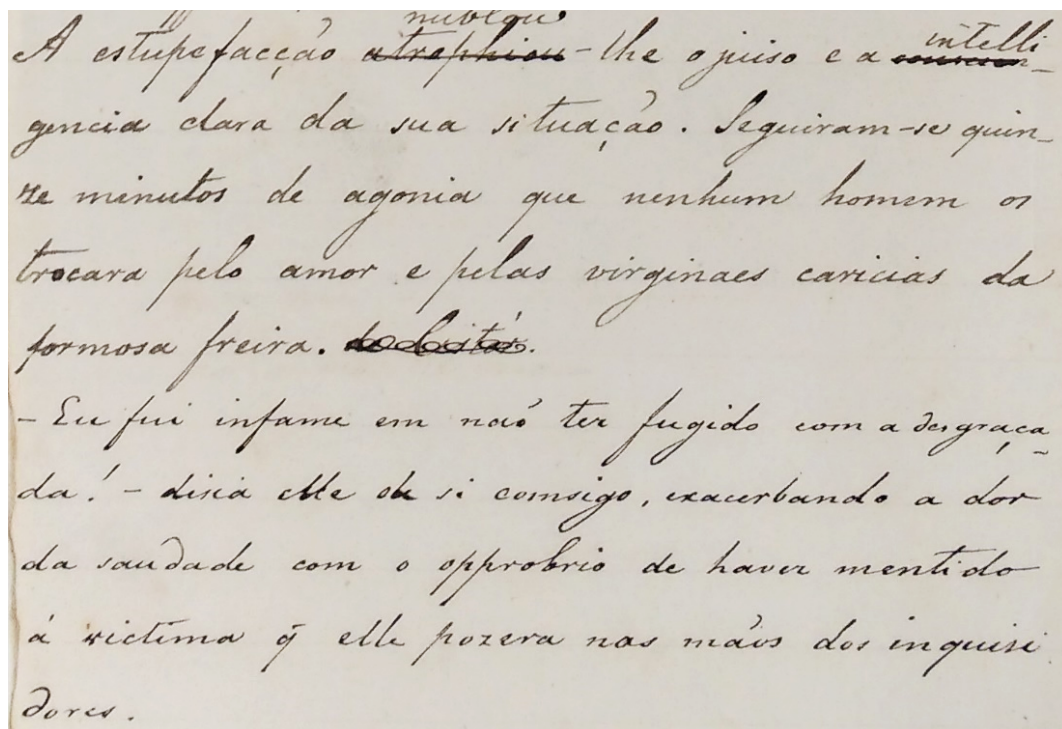 nublou
A estupefacção atrophiou-lhe o juiso e a intelli
gencia clara da sua situação. Seguiram-se quin-
ze minutos de agonia que nenhum homem os
trocara pelo amor e pelas virginaes caricias da
formosa freira.
- Eu fui infame em não ter fugido com a desgraça-
da! - disia elle de si comsigo, exacerbando a dor
da saudade com o opprobrio de haver mentido
á victima q̃ elle pozera nas mãos dos inquisi
dores.